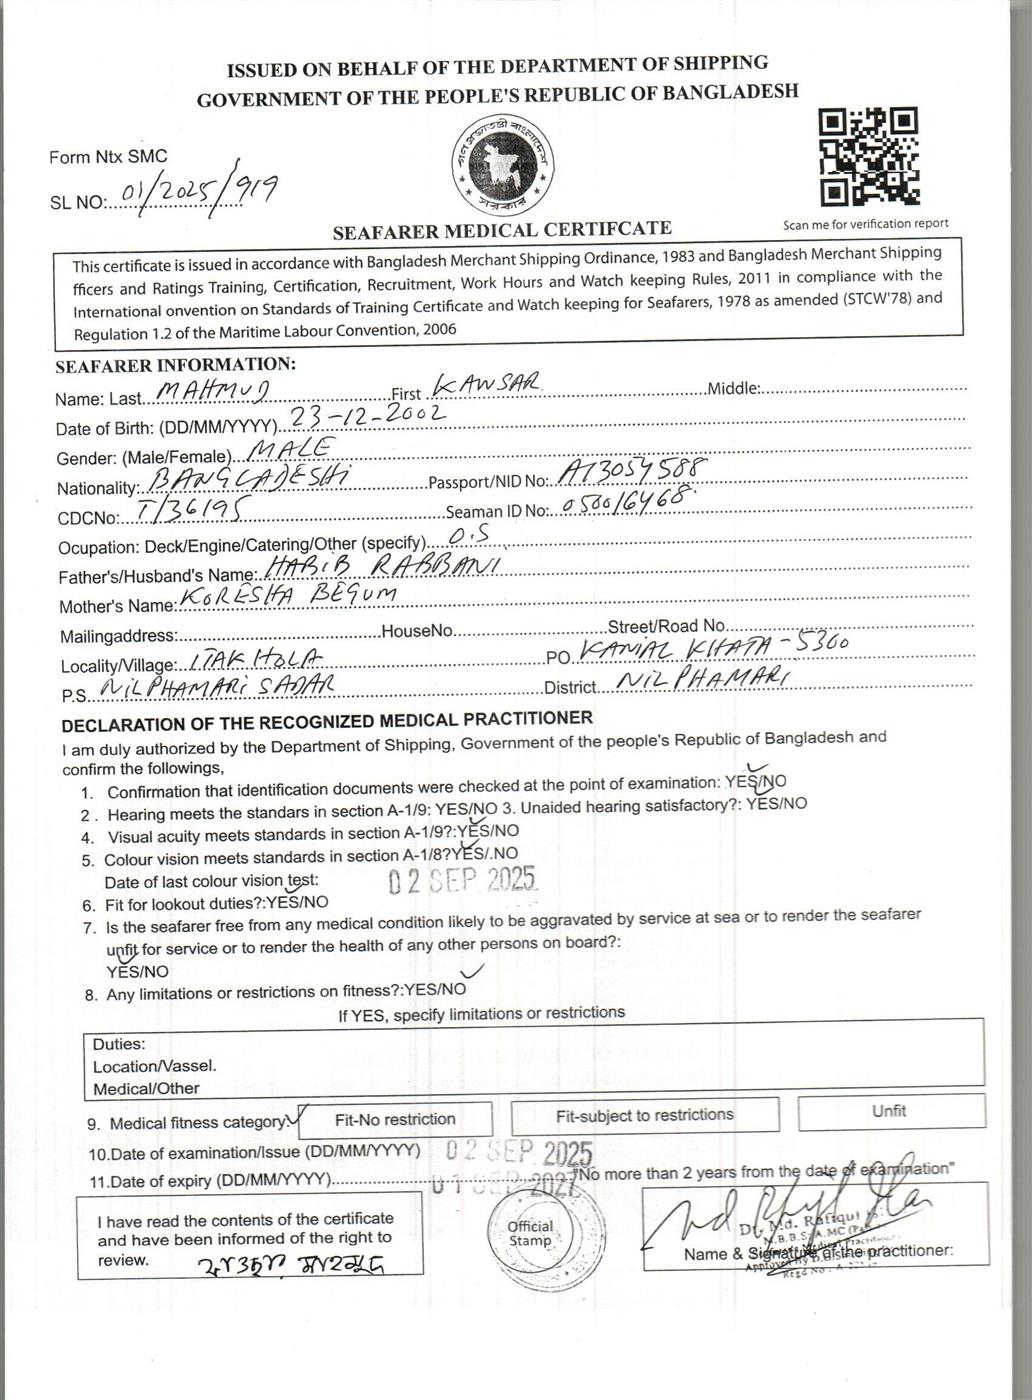 ISSUED ON BEHALF OF THE DEPARTMENT OF SHIPPING
GOVERNMENT OF THE PEOPLE'S REPUBLIC OF BANGLADESH
গনপ্রজাতন্ত্রী বাংলাদেশ
সরকার
Form Ntx SMC
SL NO:....01/2025/919
Scan me for verification report
SEAFARER MEDICAL CERTIFCATE
This certificate is issued in accordance with Bangladesh Merchant Shipping Ordinance, 1983 and Bangladesh Merchant Shipping
fficers and Ratings Training, Certification, Recruitment, Work Hours and Watch keeping Rules, 2011 in compliance with the
International onvention on Standards of Training Certificate and Watch keeping for Seafarers, 1978 as amended (STCW'78) and
Regulation 1.2 of the Maritime Labour Convention, 2006
SEAFARER INFORMATION:
Name: Last...MAHMUD...First...KAWSAR...Middle:...
Date of Birth: (DD/MM/YYYY)...23-12-2002
Gender: (Male/Female)...MALE
Nationality:...BANGLADESHI...Passport/NID No:...A13054588
CDCNo:...T/36195...Seaman ID No:...050016468
Ocupation: Deck/Engine/Catering/Other (specify)....O.S
Father's/Husband's Name:...HABIB RABBANI
Mother's Name:...KORESHA BEGUM
Mailingaddress:...HouseNo...Street/Road No...
Locality/Village:...ITAKHOLA...PO...KANIAL KHATA-5300
P.S...NILPHAMARI SADAR...District...NILPHAMARI
DECLARATION OF THE RECOGNIZED MEDICAL PRACTITIONER
I am duly authorized by the Department of Shipping, Government of the people's Republic of Bangladesh and
confirm the followings,
1. Confirmation that identification documents were checked at the point of examination: YES/NO
2 . Hearing meets the standars in section A-1/9: YES/NO 3. Unaided hearing satisfactory?: YES/NO
4. Visual acuity meets standards in section A-1/9?:YES/NO
5. Colour vision meets standards in section A-1/8?YES/.NO
Date of last colour vision test: 02 SEP 2025
6. Fit for lookout duties?:YES/NO
7. Is the seafarer free from any medical condition likely to be aggravated by service at sea or to render the seafarer
unfit for service or to render the health of any other persons on board?:
YES/NO
8. Any limitations or restrictions on fitness?:YES/NO
If YES, specify limitations or restrictions
Duties:
Location/Vassel.
Medical/Other
9. Medical fitness category: Fit-No restriction Fit-subject to restrictions Unfit
10.Date of examination/Issue (DD/MM/YYYY) 02 SEP 2025
11.Date of expiry (DD/MM/YYYY)...01 SEP 2027 "No more than 2 years from the date of examination"
I have read the contents of the certificate
and have been informed of the right to
review.
কাওছার মাহমুদ
Official
Stamp
Dr. Md. Rafiqul
Name & Signature of the practitioner: